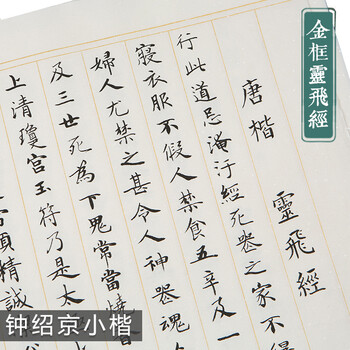 金框靈飛經
唐楷　靈飛經
行此道忌淹汙經死器之家不得
寢衣服不假人禁食五辛及一
婦人尤禁之甚令人神器魂
及三世死為下鬼常當燒香
上清瓊宮玉符乃是太
須精誠
钟绍京小楷